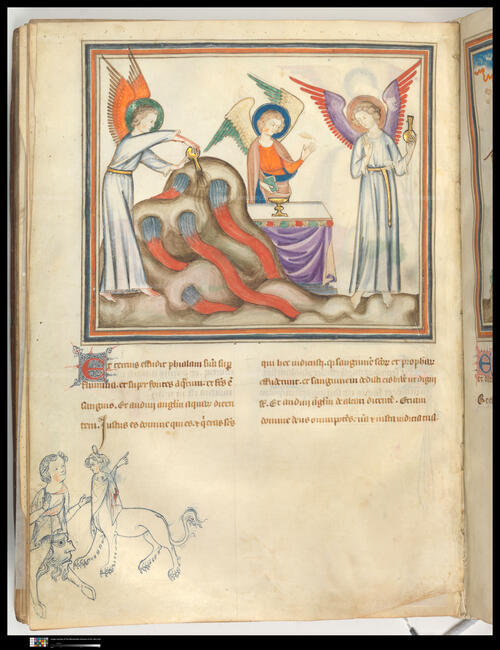 Et tercius effudit phialam suā sup
flumina. et super fontes aquarū. et fc̄s ē
sanguis. Et audiui anglm̄ aquarꝝ dicen
tem. Justus es domine qui es. et q̇ eras sc̄s
qui hec iudicasti. q̇ sanguinē sc̄orꝝ et prophetar
effuderunt. et sanguinem eis dedisti bibere ut digni
st̄. Et audiui dicentē. Etiam
domine deus omnipotēs. uera et iusta iudicia tua.